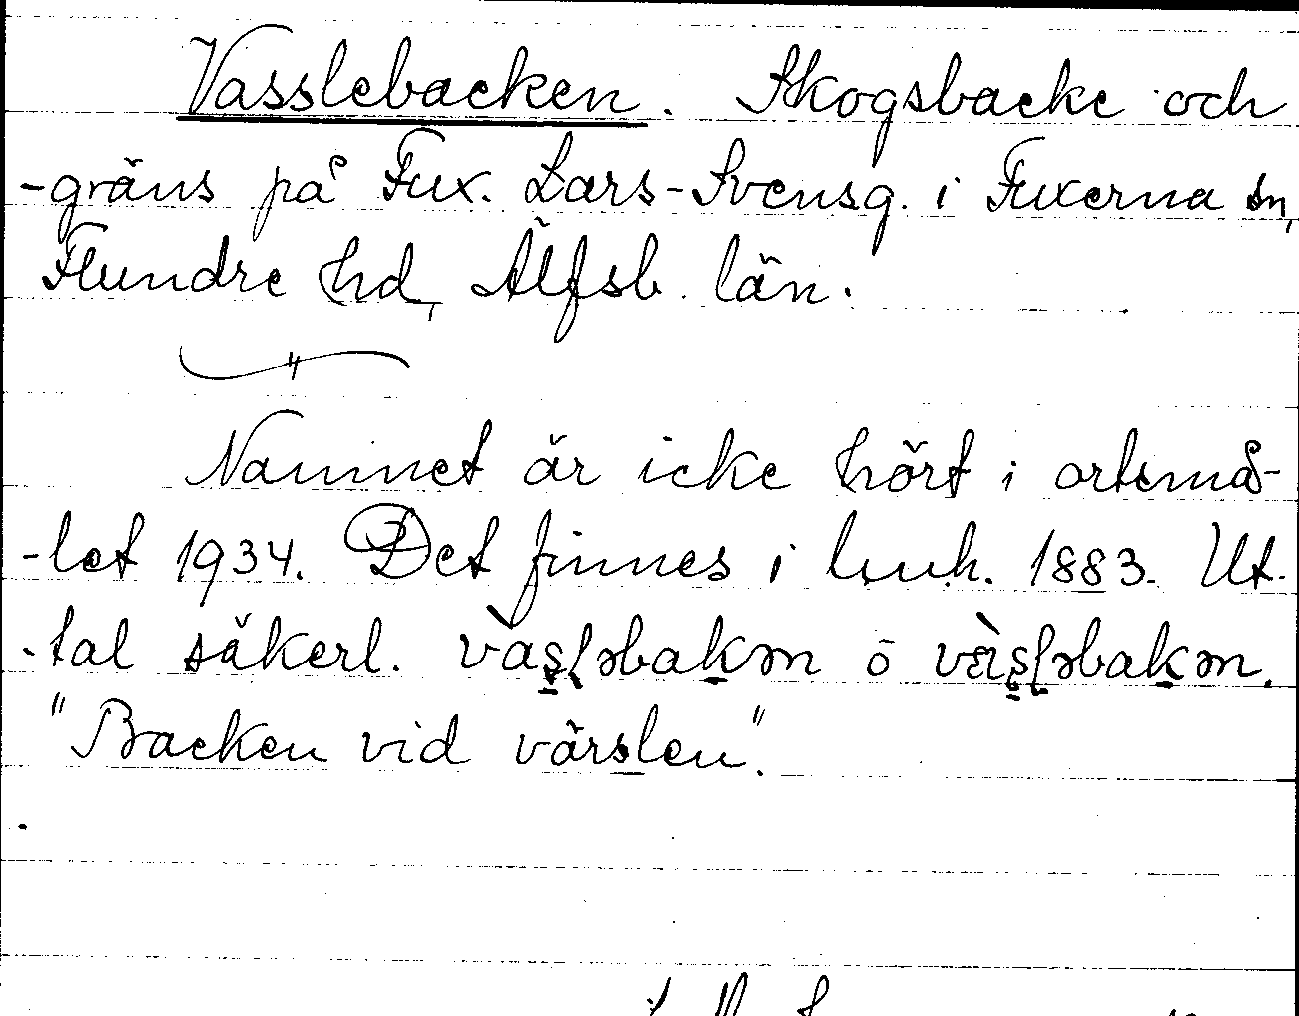 Vasslebacken. Skogsbacke och
-gräns på Fux. Lars-Svensg. i Fuxerna sn,
Flundre hd, Älfsb. län.
"
Namnet är icke hört i ortsmå-
-let 1934. Det finnes i luuh. 1883. Ut-
-tal säkerl.
"Backen vid värslen".